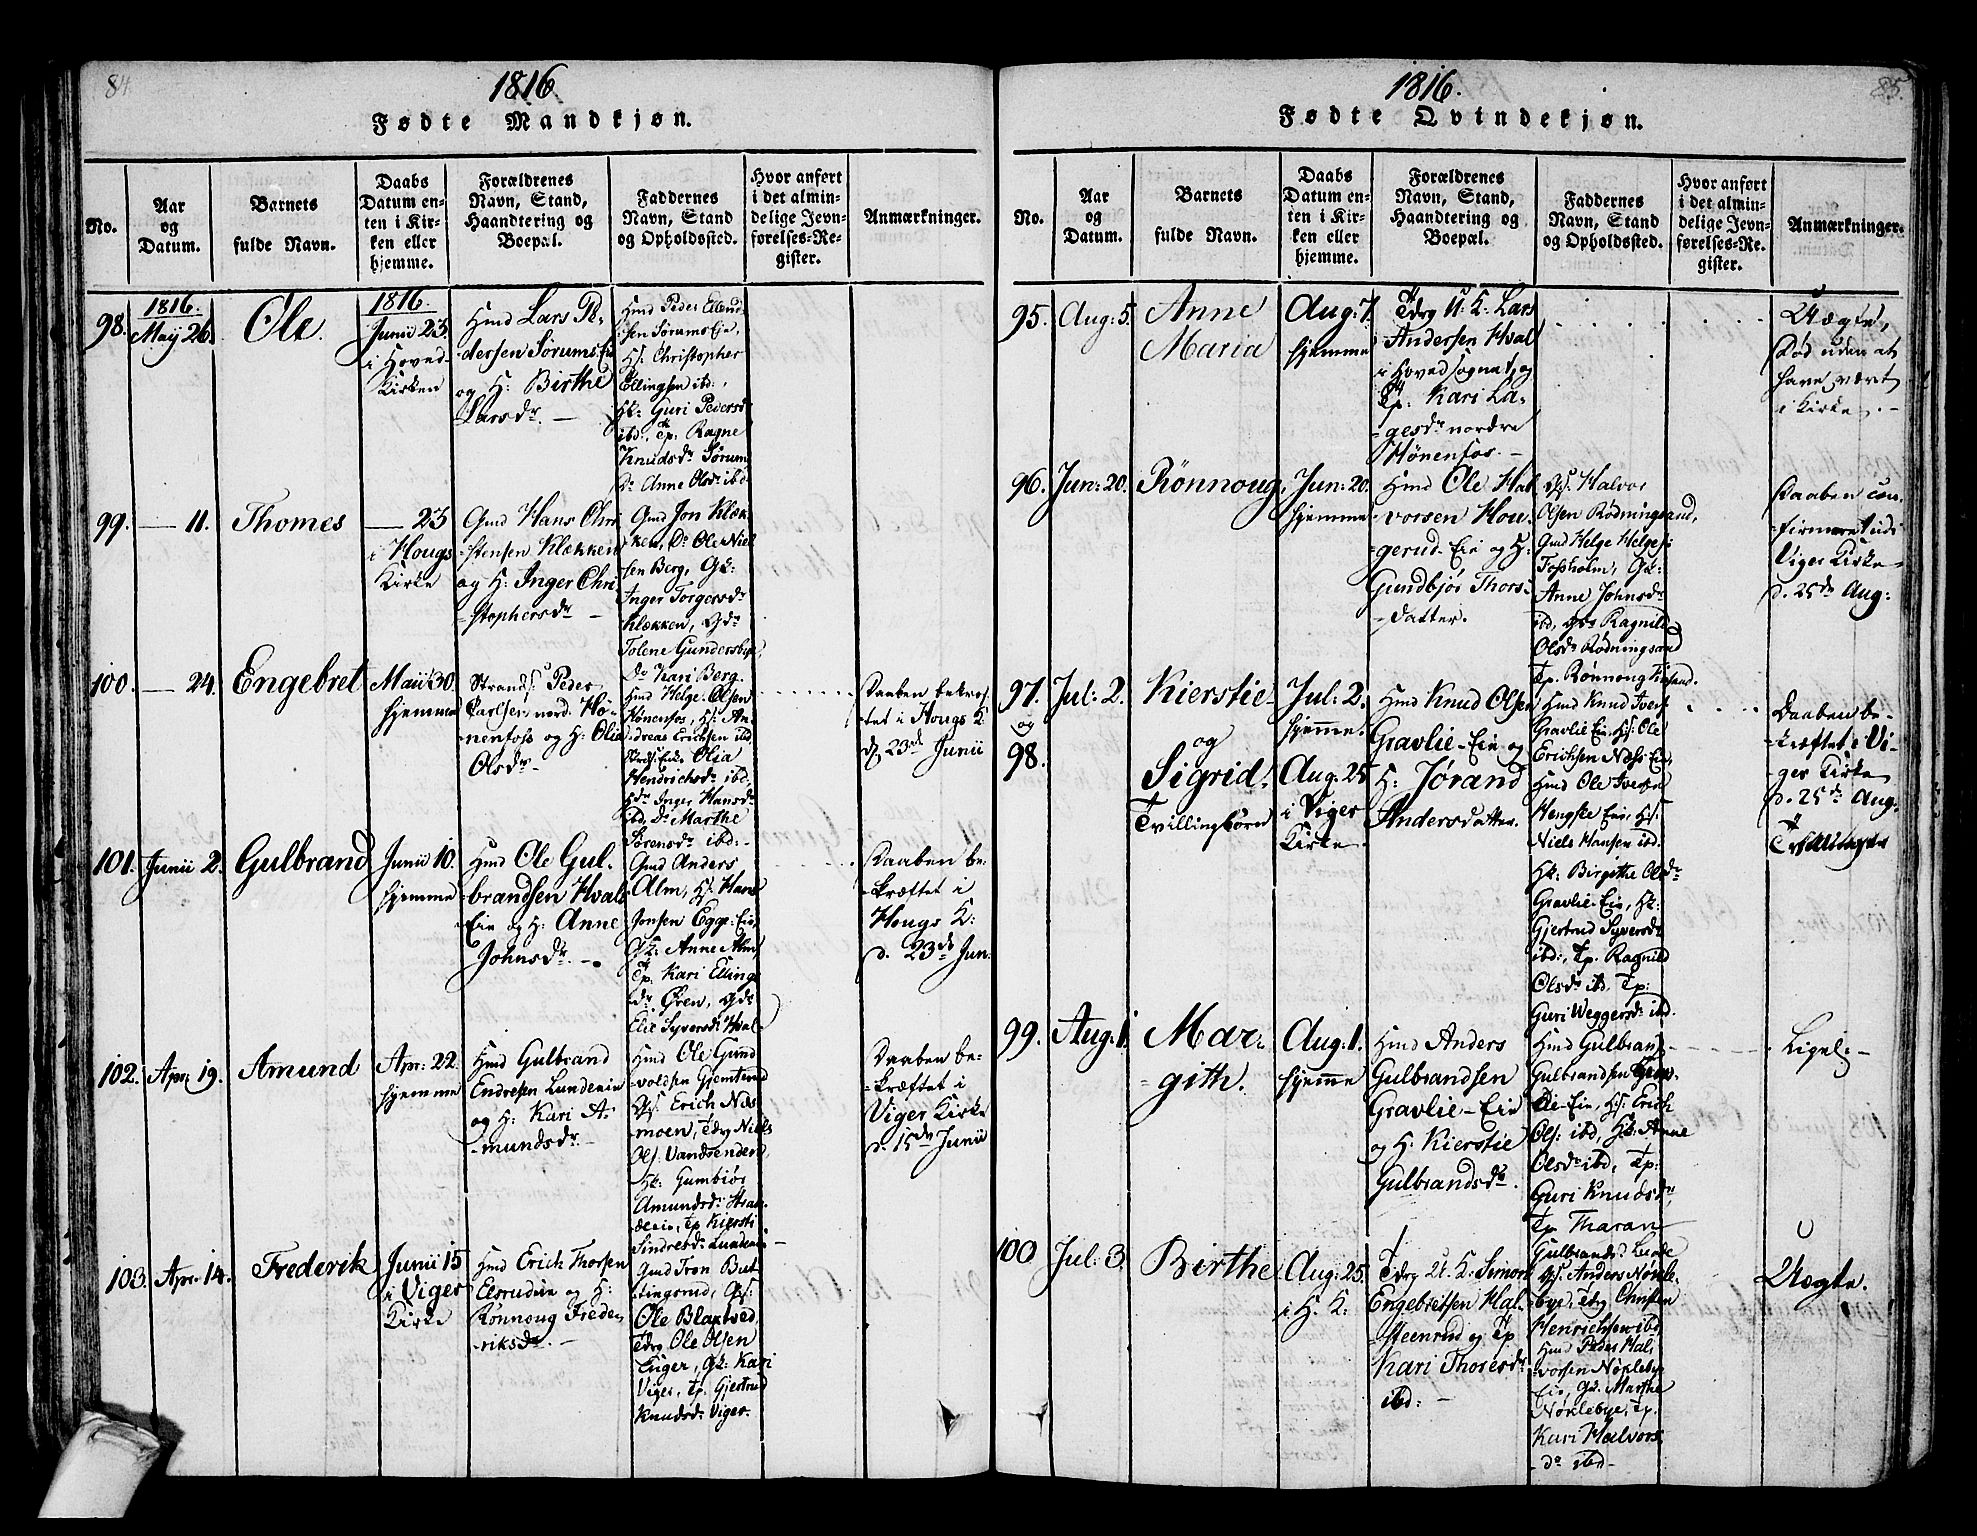 84
1816.
Fødte Mandkjøn.
No.
Aar
og
Datum.
Barnets
fulde Navn.
Daabs
Datum en-
ten i Kir-
ken eller
hjemme.
Forældrenes
Navn, Stand,
Haandtering og
Boepæl.
Faddernes
Navn, Stand
og Opholdssted.
Hvor anført
i det almin-
delige Jevn-
førelses-Re-
gister.
Anmærkninger.
98.
1816.
Maÿ 26.
Ole
1816.
Junii 23
i Hoved-
Kirken
Hmd Lars Pe-
dersen Sørums Eie
og H: Birthe
Larsdr. -
Hmd Peder Ellend
sen Sørums Eie,
Hs. Christopher
Ellingsen ibd:,
Hk: Guri Pedersd
ibd:, Tp. Ragne
Knudsdr Sørum
Do Anne Olsdr ibd
99.
— 11.
Thomes
— 23
i Hougs
Kirke
Gmd Hans Chri
-stensen Klækken
og H: Inger Chri
-stophersdr —
Gmd Jon Klæk
ken, Do Ole Niel
sen Berg, Gk:
Inger Torgersdr
Klækken, Gdr
Tolene Gundersbye,
Do Kari Berg.
100.
— 24.
Engebret
Maii 30
hjemme
Strands. Peder
Carlsen nord. Hø-
nenfoss og H: Olia
Olsdr -
Hmd Helge Olsen
Hønenfos, Hs. An
dreas Erichsen ibd.
Olia
Hendrichsdr ibd.
Inger Hansdr
ibd, Do Marthe
Sørensdr ibd: -
Daaben bekræf
tet i Hougs K.
d. 23de Junii
101.
Junii 2.
Gulbrand
Junii 10.
hjemme
Hmd Ole Gul.
brandsen Hvals
Eie og H: Anne
Johnsdr. -
Gmd Anders
Alm, Hs. Hans
Jonsen Egge-Eie,
Gk: Anne Alm,
Tp. Kari Ellings
dr Øren, Gdr
Elie Syversdr Hval.
Daaben be-
kræftet i
Hougs K:
d. 23de Jun:
102.
Apr: 19.
Amund
Apr: 22.
hjemme
Hmd Gulbrand
Endresen Lundeeie
og H: Kari A-
mundsdr. -
Hmd Ole Gund
voldsen Gjemtund
Gs. Erich Næs
moen, Tdrg Niels
Ols: Vandsenden,
Hk: Gumbiør
Amundsdr Hval-
Tp. Kiersti
Sindresdr Lundeeie
Daaben be-
kræftet i
Viger Kirke
d. 15de Junii
103.
Apr: 14.
Frederik
Junii 15
i Viger
Kirke
Hmd Erich Thorsen
Elsrudeie og H:
Rønnoug Frede-
riksdr. -
Gmd Tron But
tingsrud, Gs:
Ole Blaktved,
Tdrg Ole Olsen
Enger, Gk: Kari
Viger, Tp. Gjertrud
Knudsdr Viger.
85.
1816.
Fødte Qvindekjøn.
No.
Aar
og
Datum.
Barnets
fulde Navn.
Daabs
Datum en-
ten i Kir-
ken eller
hjemme.
Forældrenes
Navn, Stand,
Haandtering og
Boepæl.
Faddernes
Navn, Stand
og Opholdssted.
Hvor anført
i det almin-
delige Jevn-
førelses-Re-
gister.
Anmærkninger.
95.
Aug: 5.
Anne
Maria
Aug: 7.
hjemme
Tdrg U: K: Lars
Andersen Hval
i Hovedsognet, og
Tp: Kari La-
gesdr nordre
Hønenfos. -
Uægte,
Død uden at
have vært
i Kirke. -
96.
Jun: 20.
Rønnoug,
Jun: 20.
hjemme
Hmd Ole Hal
vorsen Hou-
gerud-Eie og H:
Gundbjør Thors-
-datter.
Gs. Halvor
Olsen Rødningsand,
Gmd Helge Helges:
Fosholm, Gk:
Anne Johnsdr
ibd, Gdr Ragnild
Olsdr Rødningsand
Tp. Rønnoug
Daaben con-
firmeret udi
Viger Kirke
d. 25de Aug:
97.
og
98.
Jul: 2.
Kierstie
og
Sigrid.
Tvillingbørn
Jul: 2.
hjemme.
Aug: 25
i Viger
Kirke.
Hmd Knud Olsen
Gravlie-Eie og
H: Jørand
Andersdatter.
Hmd Knud Ivers
Gravlie Eie, Hs: Ole
Erichsen Næss Eie,
Hmd Ole Iversen
Hengsle Eie, Hs:
Niels Hansen ibd.
Hk: Birgithe Olsdr
Gravlie-Eie, Hk:
Gjertrud Syversdr
ibd:, Tp. Ragnild
Olsdr ibd, Tp:
Guri Weggersdr ibd.
Daaben be-
kræftet i Vi-
ger Kirke
d. 25de Aug.
99.
Aug: 1.
Mar-
gith.
Aug: 1.
hjemme
Hmd Anders
Gulbrandsen
Gravlie-Eie
og H: Kierstie
Gulbrandsdr.
Hmd Gulbrand
Gulbrandsen Grav-
lie-Eie, Hs. Erich
Ols: ibd, Hk: Anne
Olsdr ibd, Tp:
Guri Knudsdr,
Tp. Tharan
Gulbrandsd
Ligel: -
100
Jul: 3.
Birthe
Aug: 25.
i H: K:
Tdrg U: K: Simon
Engebretsen Hal-
-steenrud og Tp
Kari Thoresdr
ibd: -
Gs. Anders Nøkle-
bye, Tdrg Christen
Henrichsen ibd,
Hmd Peder Hal
vorsen Nøklebye
Eie, Gk. Marthe
Nøklebye, Tp.
Kari Halvors
dr ibd-
Uægte.